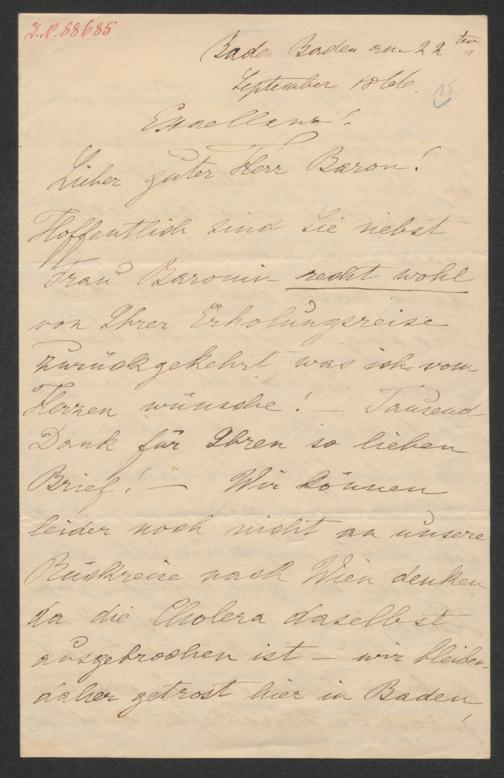 I.N. 88685
Baden Baden am 22ten
September 1866.
15
Excellenz!
Lieber guter Herr Baron!
Hoffentlich sind Sie nebst
Frau Baronin recht wohl
von Ihrer Erholungsreise
zurückgekehrt was ich vom
Herzen wünsche! – Tausend
Dank für Ihren so lieben
Brief! – Wir können
leider noch nicht an unsere
Rückreise nach Wien denken
da die Cholera daselbst
ausgebrochen ist – wir bleiben
daher getrost hier in Baden